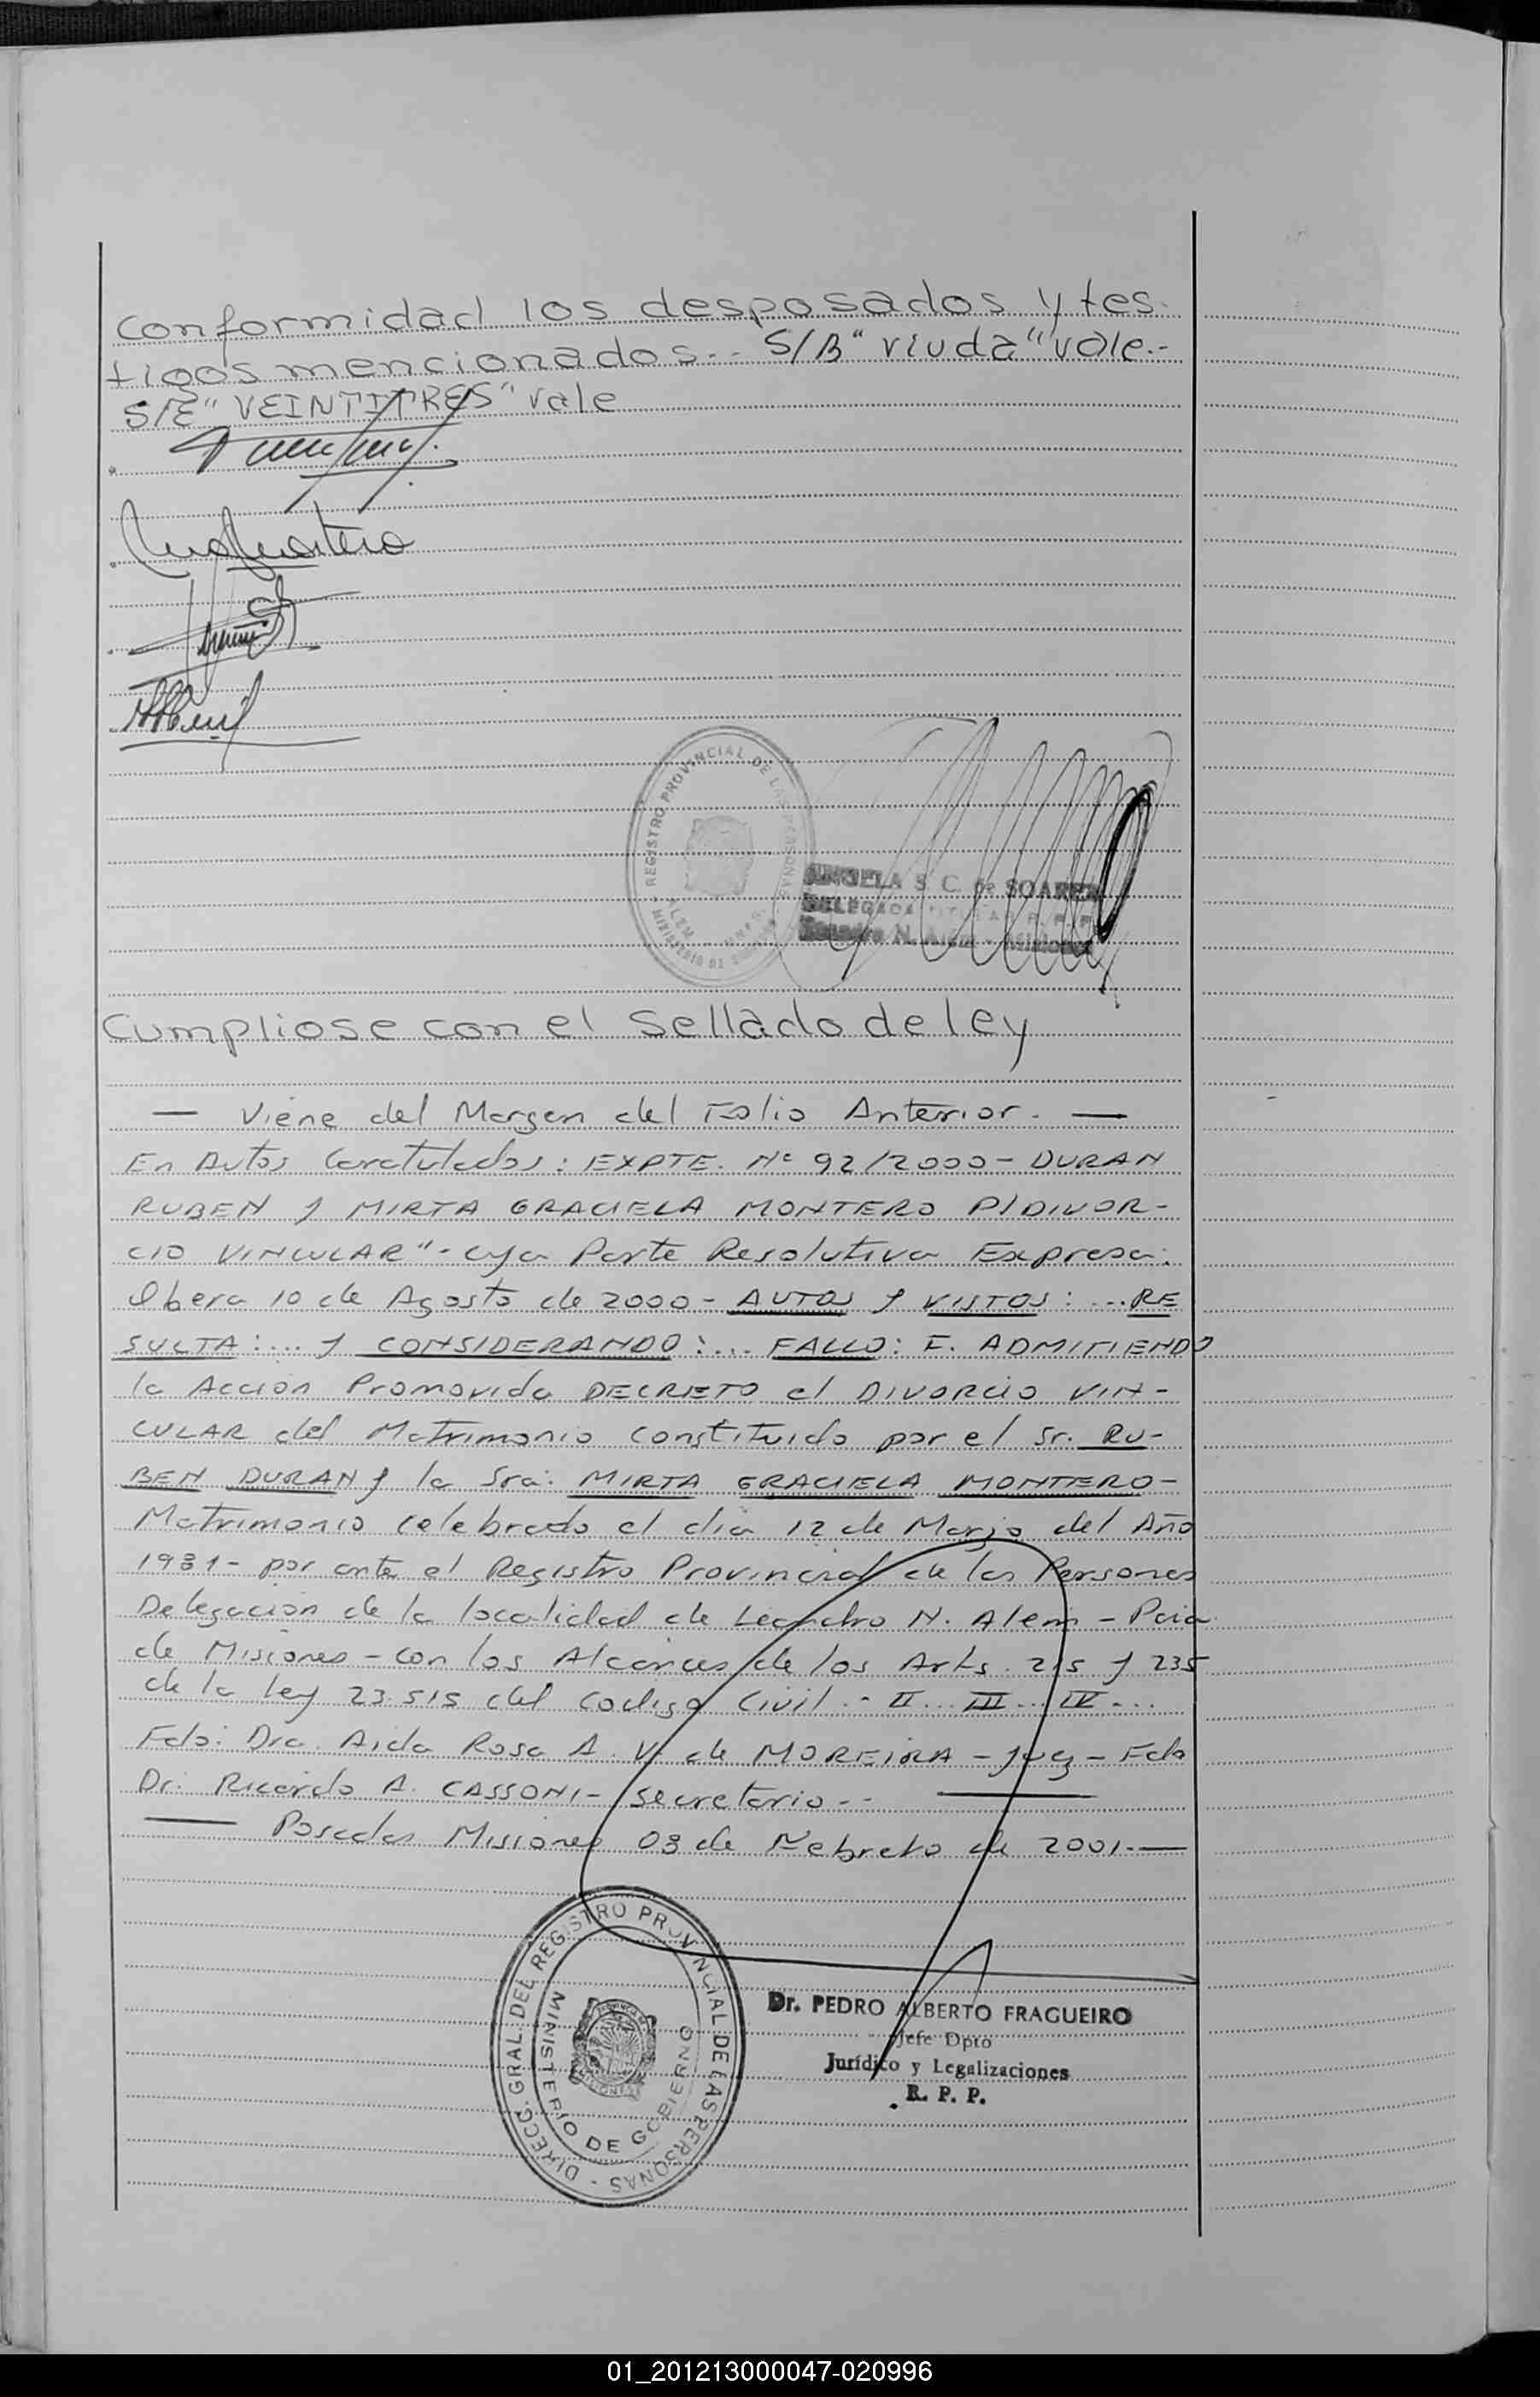 conformidad los desposados y tes-
tigos mencionados.- S/B "viuda" vale.-
S/E "VEINTITRES" vale
REGISTRO PROVINCIAL DE LAS PERSONAS
ANGELA S. C. de SOAREZ
DELEGADA TITULAR R.P.P.
Leandro N. Alem - Misiones
Cumpliose con el sellado de ley
— Viene del Margen del Folio Anterior. —
En Autos Caratulados: EXPTE. Nº 92/2000 - DURAN
RUBEN Y MIRTA GRACIELA MONTERO P/DIVOR-
CIO VINCULAR"- cuya Parte Resolutiva Expresa:
Obera 10 de Agosto de 2000 - AUTOS Y VISTOS: ... RE
SULTA: .... Y CONSIDERANDO: ... FALLO: I. ADMITIENDO
la Acción Promovida DECRETO el DIVORCIO VIN-
CULAR del Matrimonio constituido por el Sr. RU-
BEN DURAN y la Sra: MIRTA GRACIELA MONTERO -
Matrimonio celebrado el dia 12 de Marzo del Año
1981 - por ante el Registro Provincial de las Personas
Delegación de la localidad de Leandro N. Alem - Pcia
de Misiones - con los Alcances de los Arts. 215 y 235
de la ley 23.515 del Codigo Civil.- II... III... IV...
Fdo: Dra. Aida Rosa A. V. de MOREIRA - Juez - Fdo
Dr. Ricardo A. CASSONI - Secretario.-
— Posadas Misiones 08 de Febrero de 2001.—
DIRECC. GRAL. DEL REGISTRO PROVINCIAL DE LAS PERSONAS -
MINISTERIO DE GOBIERNO
Dr. PEDRO ALBERTO FRAGUEIRO
Jefe Dpto
Jurídico y Legalizaciones
R. P. P.
01_201213000047-020996